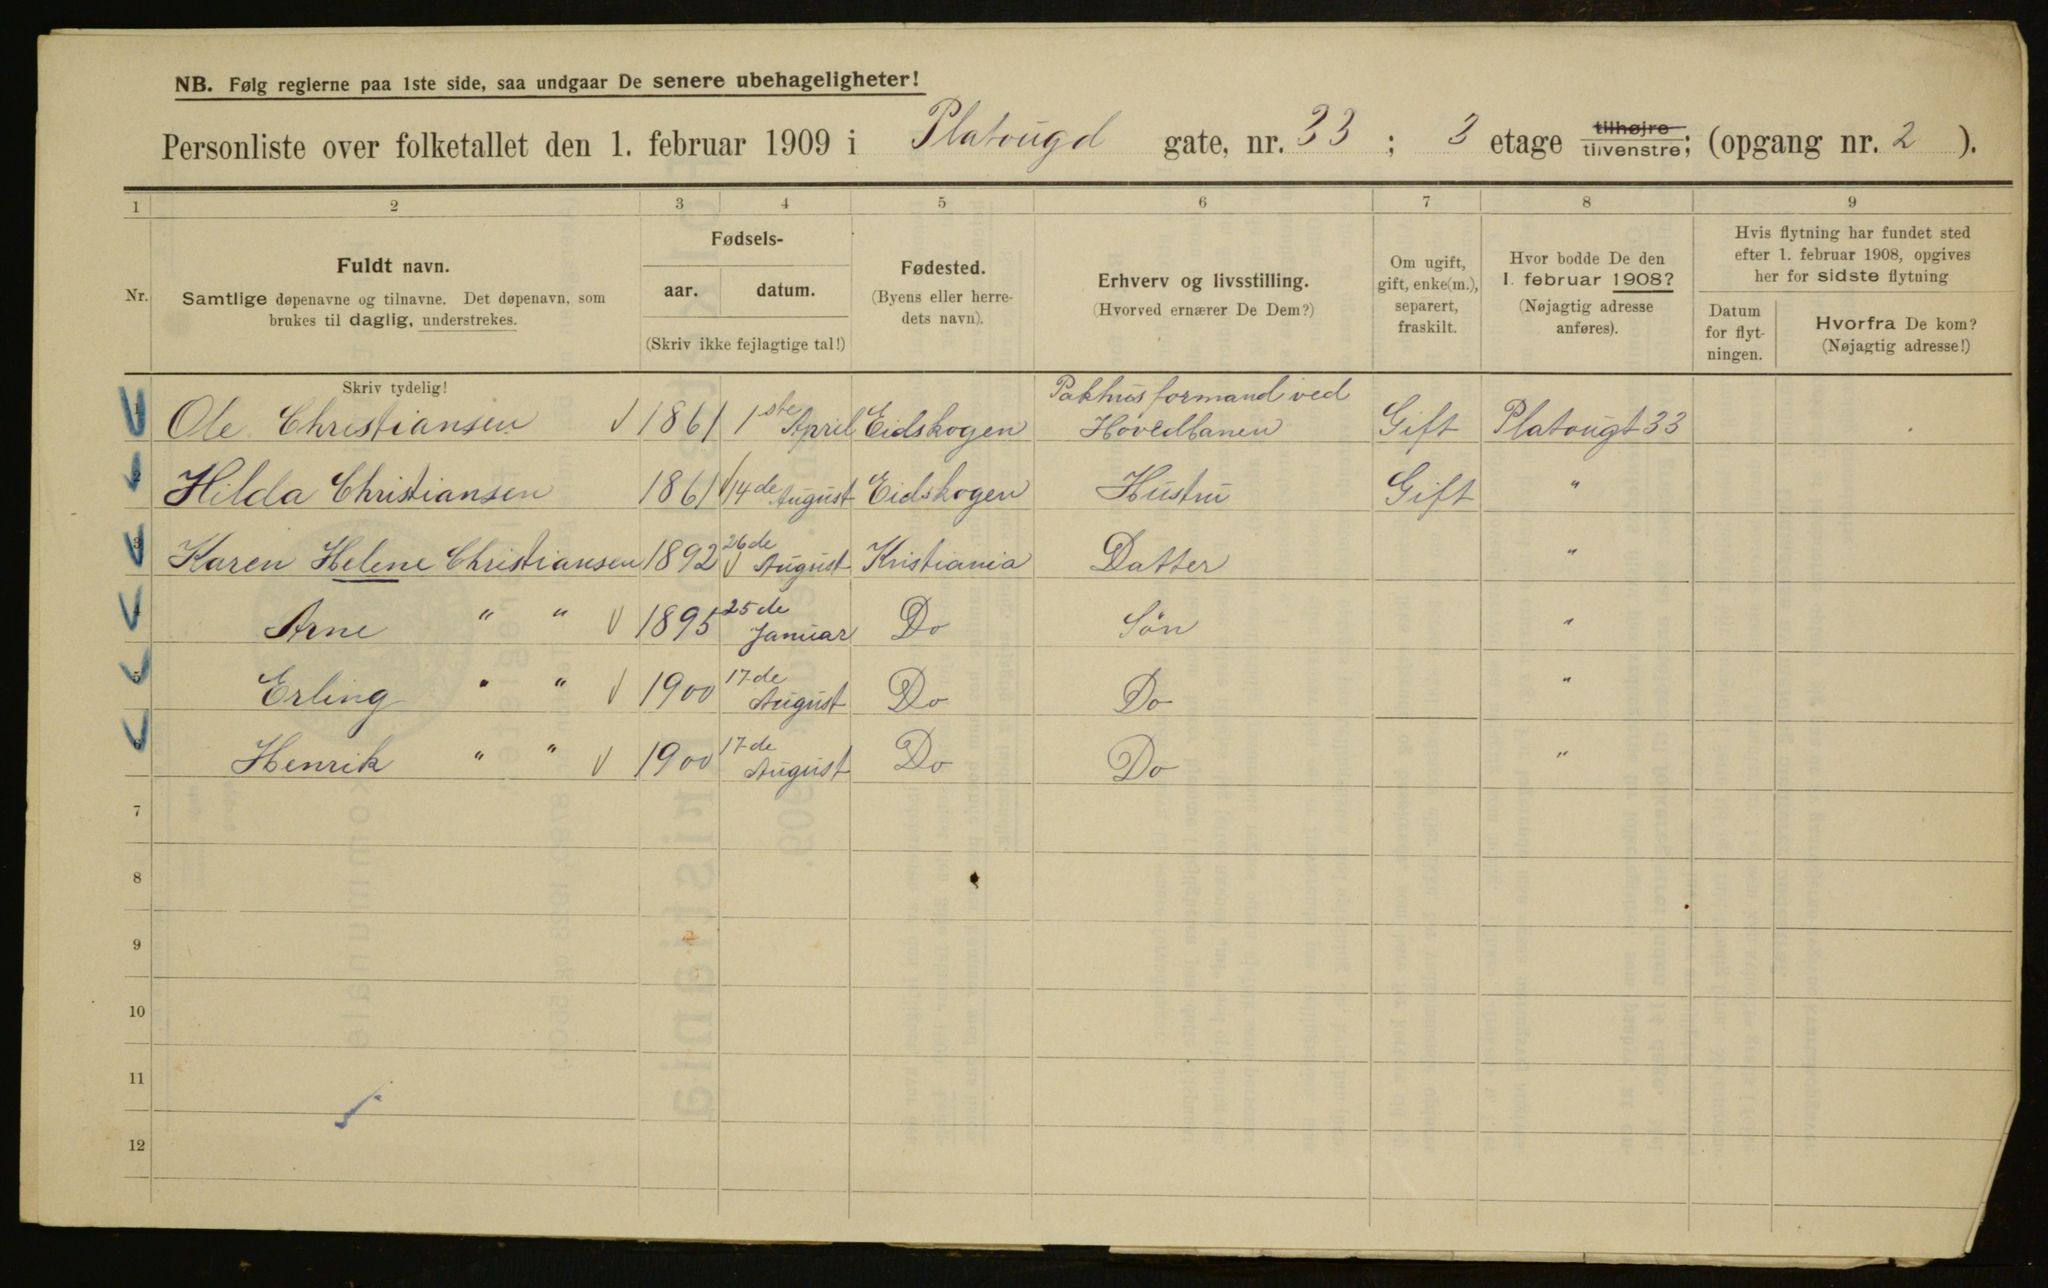 NB. Følg reglerne paa 1ste side, saa undgaar De senere ubehageligheter!
Personliste over folketallet den 1. februar 1909 i Platougd gate, nr. 33 ; 3 etage tilhøjre tilvenstre; (opgang nr. 2 ).
1 2 3 4 5 6 7 8 9
Nr.
Fuldt navn.
Samtlige døpenavne og tilnavne. Det døpenavn, som
brukes til daglig, understrekes.
Fødsels-
aar. datum.
(Skriv ikke fejlagtige tal!)
Fødested.
(Byens eller herre-
dets navn).
Erhverv og livsstilling.
(Hvorved ernærer De Dem?)
Om ugift,
gift, enke(m.),
separert,
fraskilt.
Hvor bodde De den
1. februar 1908?
(Nøjagtig adresse
anføres).
Hvis flytning har fundet sted
efter 1. februar 1908, opgives
her for sidste flytning
Datum
for flyt-
ningen.
Hvorfra De kom?
(Nøjagtig adresse!)
Skriv tydelig!
1 Ole Christiansen 1861 1ste April Eidskogen Pakhusformand ved Hovedbanen Gift Platougt 33
2 Hilda Christiansen 1861 14de August Eidskogen Hustru Gift "
3 Karen Helene Christiansen 1892 26de August Kristiania Datter "
4 Arne " " 1895 25de Januar Do Søn "
5 Erling " " 1900 17-de August Do Do "
6 Henrik " " 1900 17-de August Do Do "
7
8
9
10
11
12